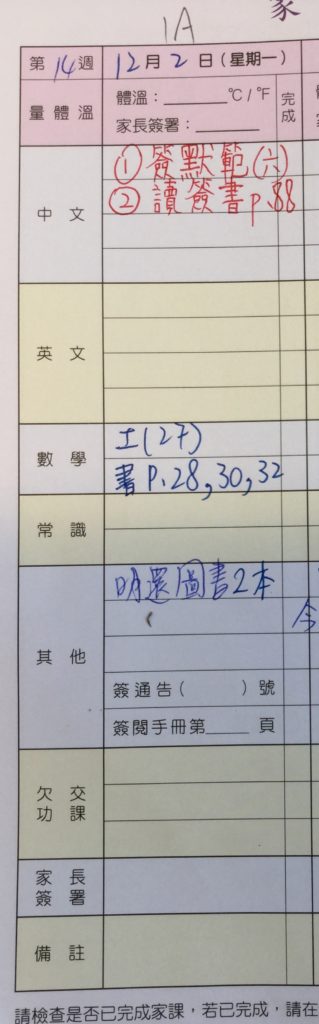 家
1A
第14週 12月2日(星期一)
量體溫 體溫：______ °C/°F 完成
家長簽署：______
中文 ① 簽默範(六)
② 讀簽書p.88
英文
數學 工(27)
書P.28,30,32
常識
其他 明還圖書2本
今
簽通告( )號
簽閱手冊第____頁
欠交功課
家長簽署
備註
請檢查是否已完成家課，若已完成，請在